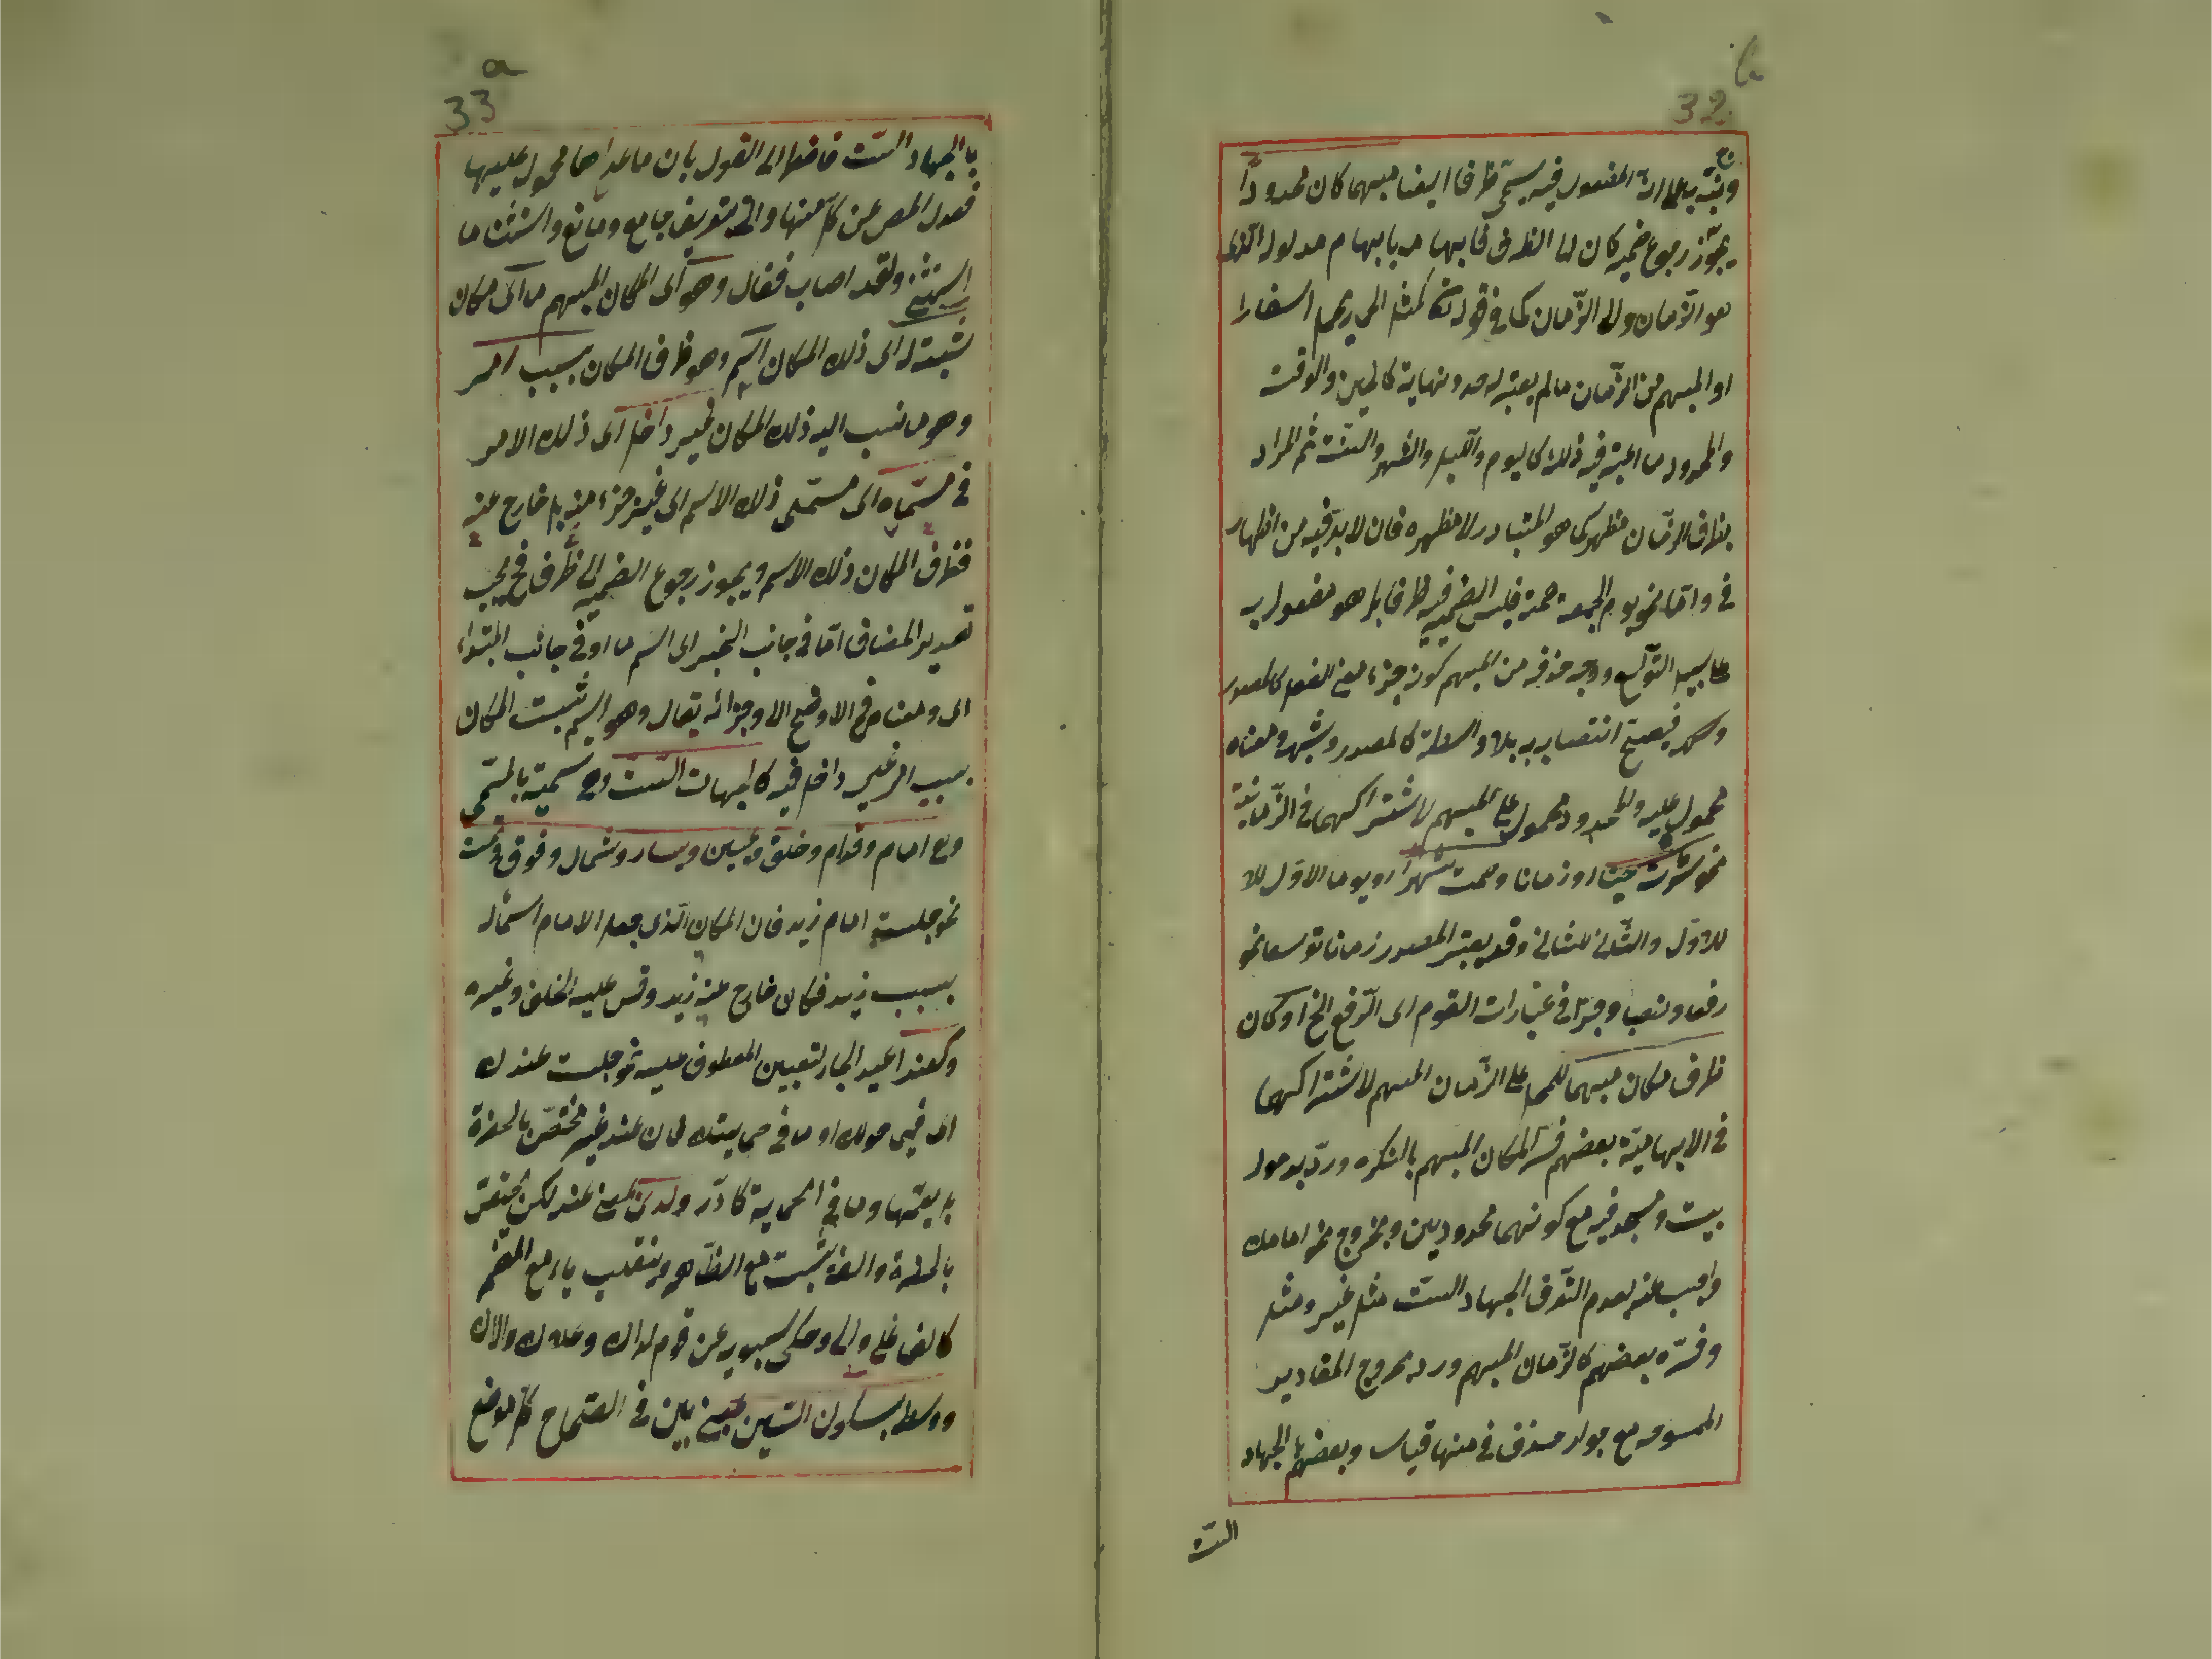 32 b
ونبّه بها على انّ المفعول فيه يسمّى ظرفا ايضا مبهما كان محدودا
يجوّز رجوع ضمير كان لما الظرف فابهامه بابهام مدلوله الّذى
هو الزّمان والى الزّمان كما فى قوله تعالى كمثل الحمار يحمل اسفارا
او المبهم من الزّمان مالم يعتبر له حد ونهاية كالحين والوقت
والمحدود ما اعتبر فيه ذلك كاليوم واللّيل والشهر والسّنة ثم المراد
بظرف الزّمان مظهر كما هو المتبادر لا مضمره فان لا بدّ فيه من اظهار
فى وامّا نحو يوم الجمعة صمته فليس الضمير فيه ظرفا بل هو مفعول به
على سبيل التوسّع ووجه حذفه من المبهم كونه جزء معنى الفعل كالمصدر
فيصحّ انتصابه به بلا واسطة كالمصدر وشبهه ومعناه
محمول عليه والمحدود محمول على المبهم لاشتراكهما فى الزّمانيّة
نحو سرت حينا او زمانا وصمت شهرا او يوما الاوّل
للاوّل والثّانى للثانى وقد يعتبر المصدر زمانا توسعا نحو
رفعا ونصبا وجرّا فى عبارات القوم اى الرّفع الخ او كان
ظرف مكان مبهما للحمل على الزّمان المبهم لاشتراكهما
فى الابهاميّة بعضهم فسّر المكان المبهم بالنكره وردّ بدخول
بيت ومسجد فيه مع كونهما محدودين وبخروج نحو امامك
واجيب عنه بعدم التعرّف الجهاد السّت مثل غير ومثل
وفسّره بعضهم كالزّمان المبهم ورد بخروج المقادير
الممسوحه مع جواز حذف فى منها قياسا وبعضهم بالجهاد
السّت
33 a
بالجهاد السّت فاضطرّ الى القول بان ما عداها محمول عليها
فعدل المص عن كلّ منها واتى بتعريف جامع ومانع واستثنى ما
استثنى ولقد اصاب فقال وهو اى المكان المبهم ما اى مكان
ثبت له اى ذلك المكان اسم وهو ظرف المكان بسبب امر
وهو ما نسب اليه ذلك المكان غير داخل اى ذلك الامر
فى مسمّاه اى مسمّى ذلك الاسم اى غير جزء منه بل خارج عنه
فظرف المكان ذلك الاسم ويجوز رجوع الضمير الى ظرف فح يجب
تقدير المضاف امّا فى جانب الخبر اى اسم ما او فى جانب المبتداء
اى ومعناه فح الاوضح الاوجز ان يقال وهو اسم ثبت المكان
بسبب امر غير داخل فيه كالجهات السّت وهى تسمية بالمسمّى
وهى امام وقدام وخلف ويمين ويسار وشمال وفوق وتحت
نحو جلست امام زيد فان المكان الّذى جعل الامام اسما له
بسبب زيد فكان خارج عنه زيد وقس عليه الخلف وغيره
وكعند اعيد الجار لتعيين المعطوف عليه نحو جلست عندك
اى فيما حولك او ما فى بيتك لان عند غير مختصّ بالحضرة
بل يعمّها وما فى كالدّار ولدى بمعنى عند لكن يختصّ
بالحضرة والفه تثبت مع الظّاهر وتنقلب ياء مع المضمر
كالف على والى وحكى سيبويه عن قوم لداك وعلاك والاك
ووسط بسكون السّين بمعنى بين فى الصّحاح كلّ موضع